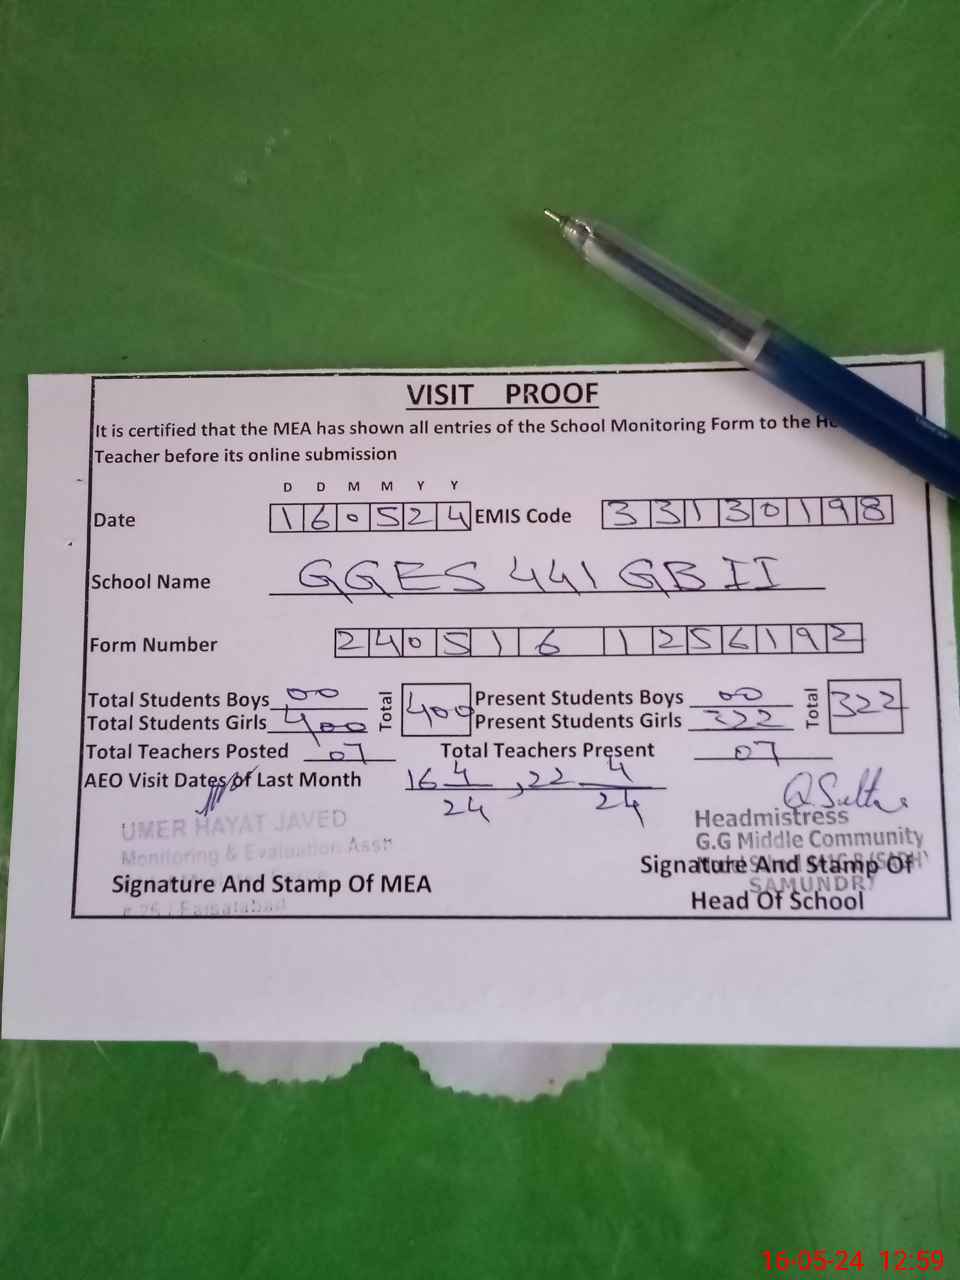 VISIT PROOF
It is certified that the MEA has shown all entries of the School Monitoring Form to the
Teacher before its online submission
D D M M Y Y
Date 160524 EMIS Code 33130198
School Name GGES 441 GB II
Form Number 2405161256192
Total Students Boys 00 Total 400 Present Students Boys 00 Total 322
Total Students Girls 400 Present Students Girls 322
Total Teachers Posted 07 Total Teachers Present 07
AEO Visit Dates of Last Month 16 4/24, 22 4/24
UMER HAYAT JAVED
Monitoring & Evaluation Asstt
Signature And Stamp Of MEA
Faisalabad
Headmistress
G.G Middle Community
Signature And Stamp Of
SAMUNDRI
Head Of School
16-05-24 12:59